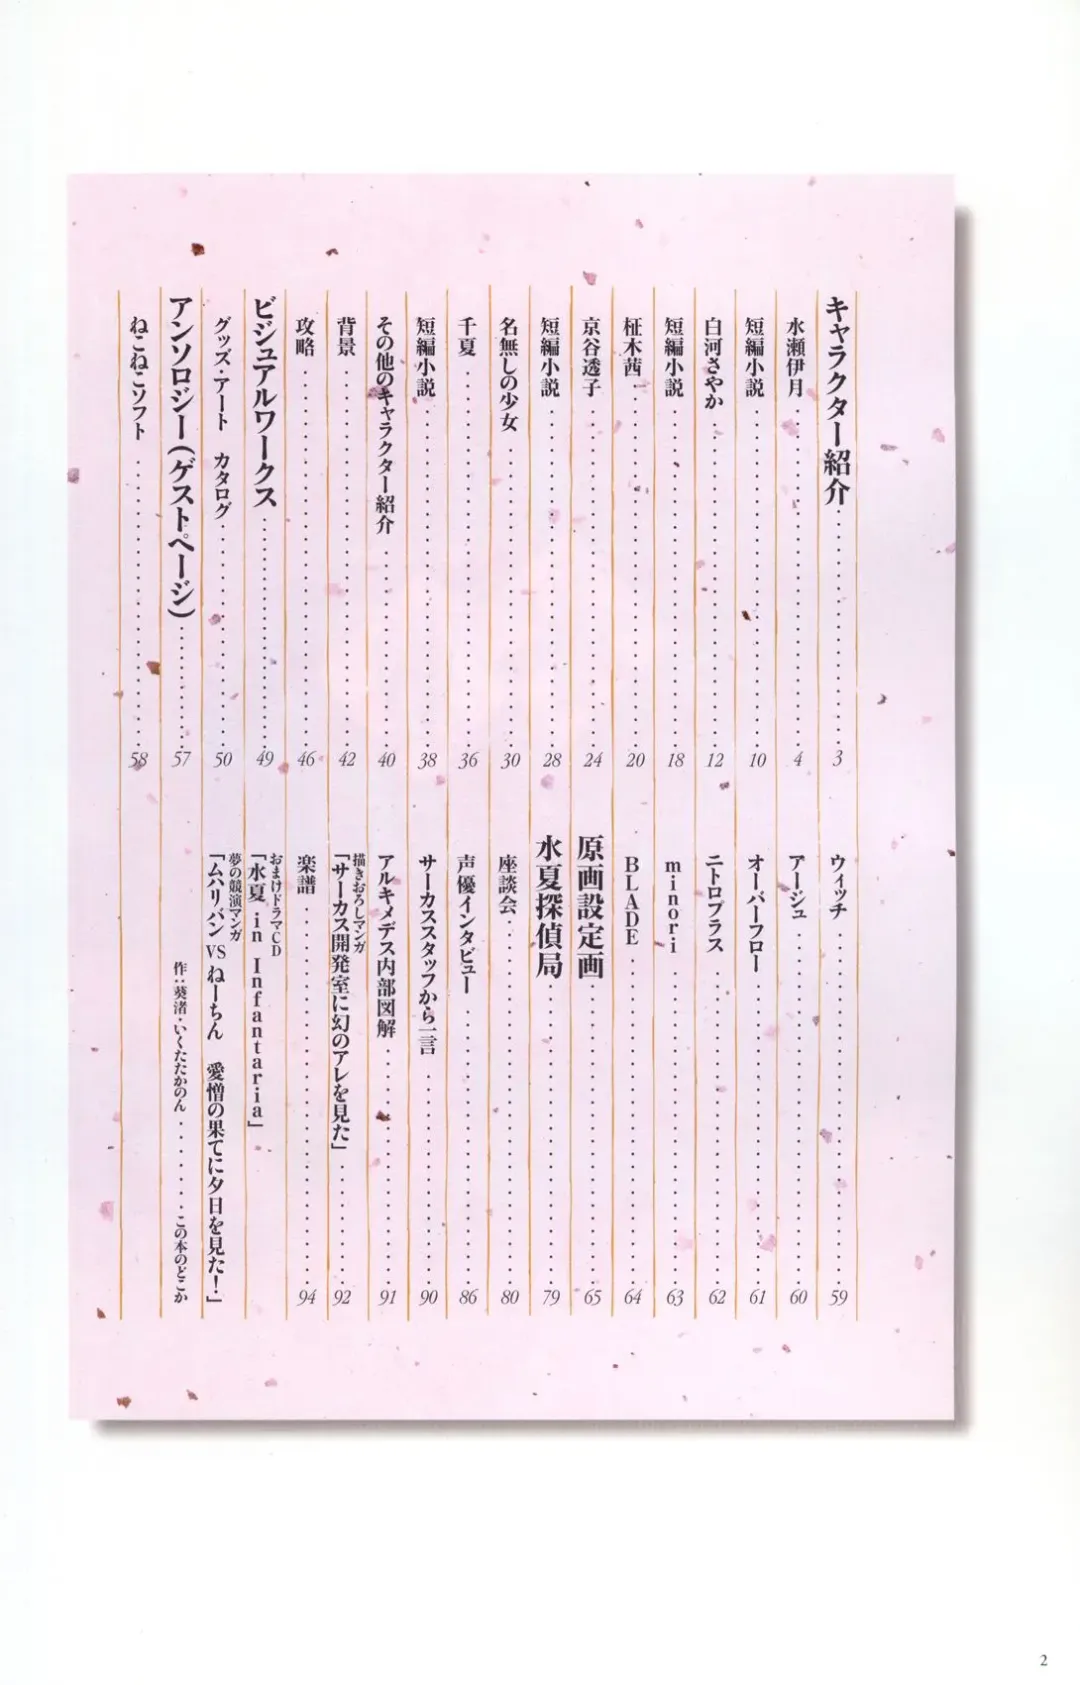 キャラクター紹介 3
水瀬伊月 4
短編小説 10
白河さやか 12
短編小説 18
柾木茜 20
京谷透子 24
短編小説 28
名無しの少女 30
千夏 36
短編小説 38
その他のキャラクター紹介 40
背景 42
攻略 46
ビジュアルワークス 49
グッズ・アート カタログ 50
アンソロジー(ゲストページ) 57
ねこねこソフト 58
ウィッチ 59
アージュ 60
オーバーフロー 61
ニトロプラス 62
minori 63
BLADE 64
原画設定画 65
水夏探偵局 79
座談会 80
声優インタビュー 86
サーカススタッフから一言 90
アルキメデス内部図解 91
描きおろしマンガ
「サーカス開発室に幻のアレを見た」 92
楽譜 94
おまけドラマCD
「水夏 in Infantaria」
夢の競演マンガ
「ムハリバン VS ねーちん 愛憎の果てに夕日を見た!」
作:葵渚・いくたたかのん この本のどこか
2